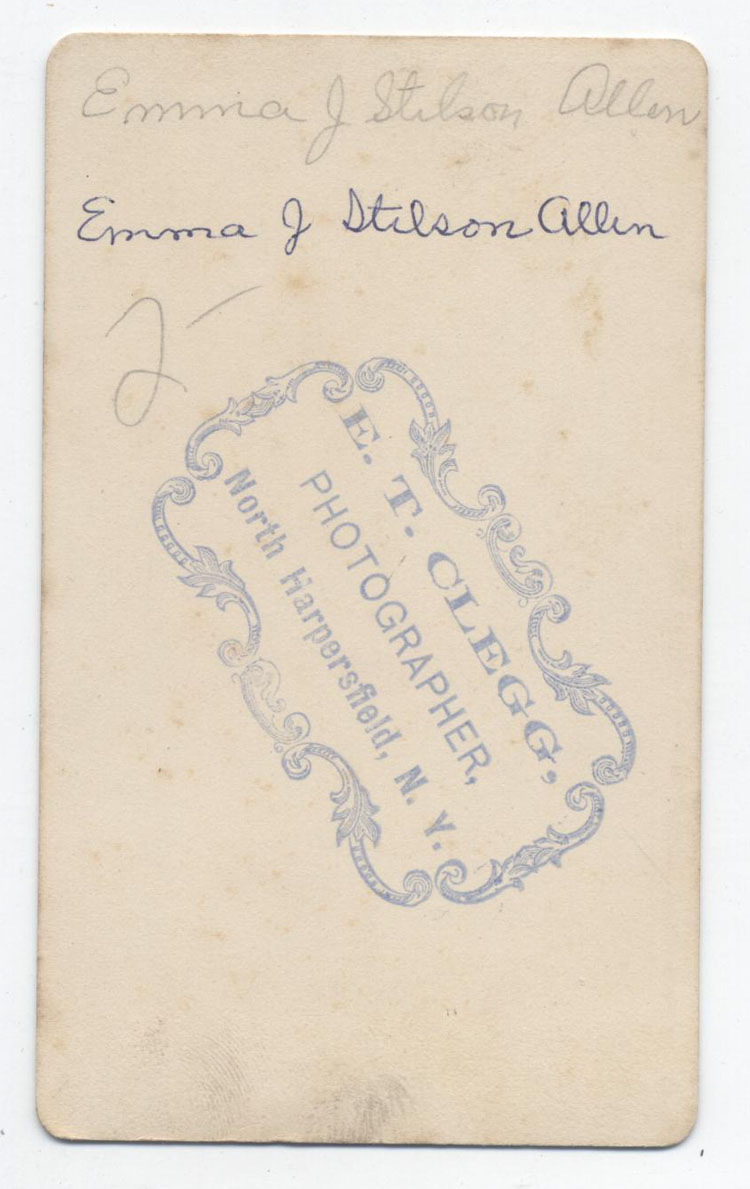 Emma J Stilson Allen
Emma J Stilson Allen
E. T. CLEGG,
PHOTOGRAPHER,
North Harpersfield, N. Y.